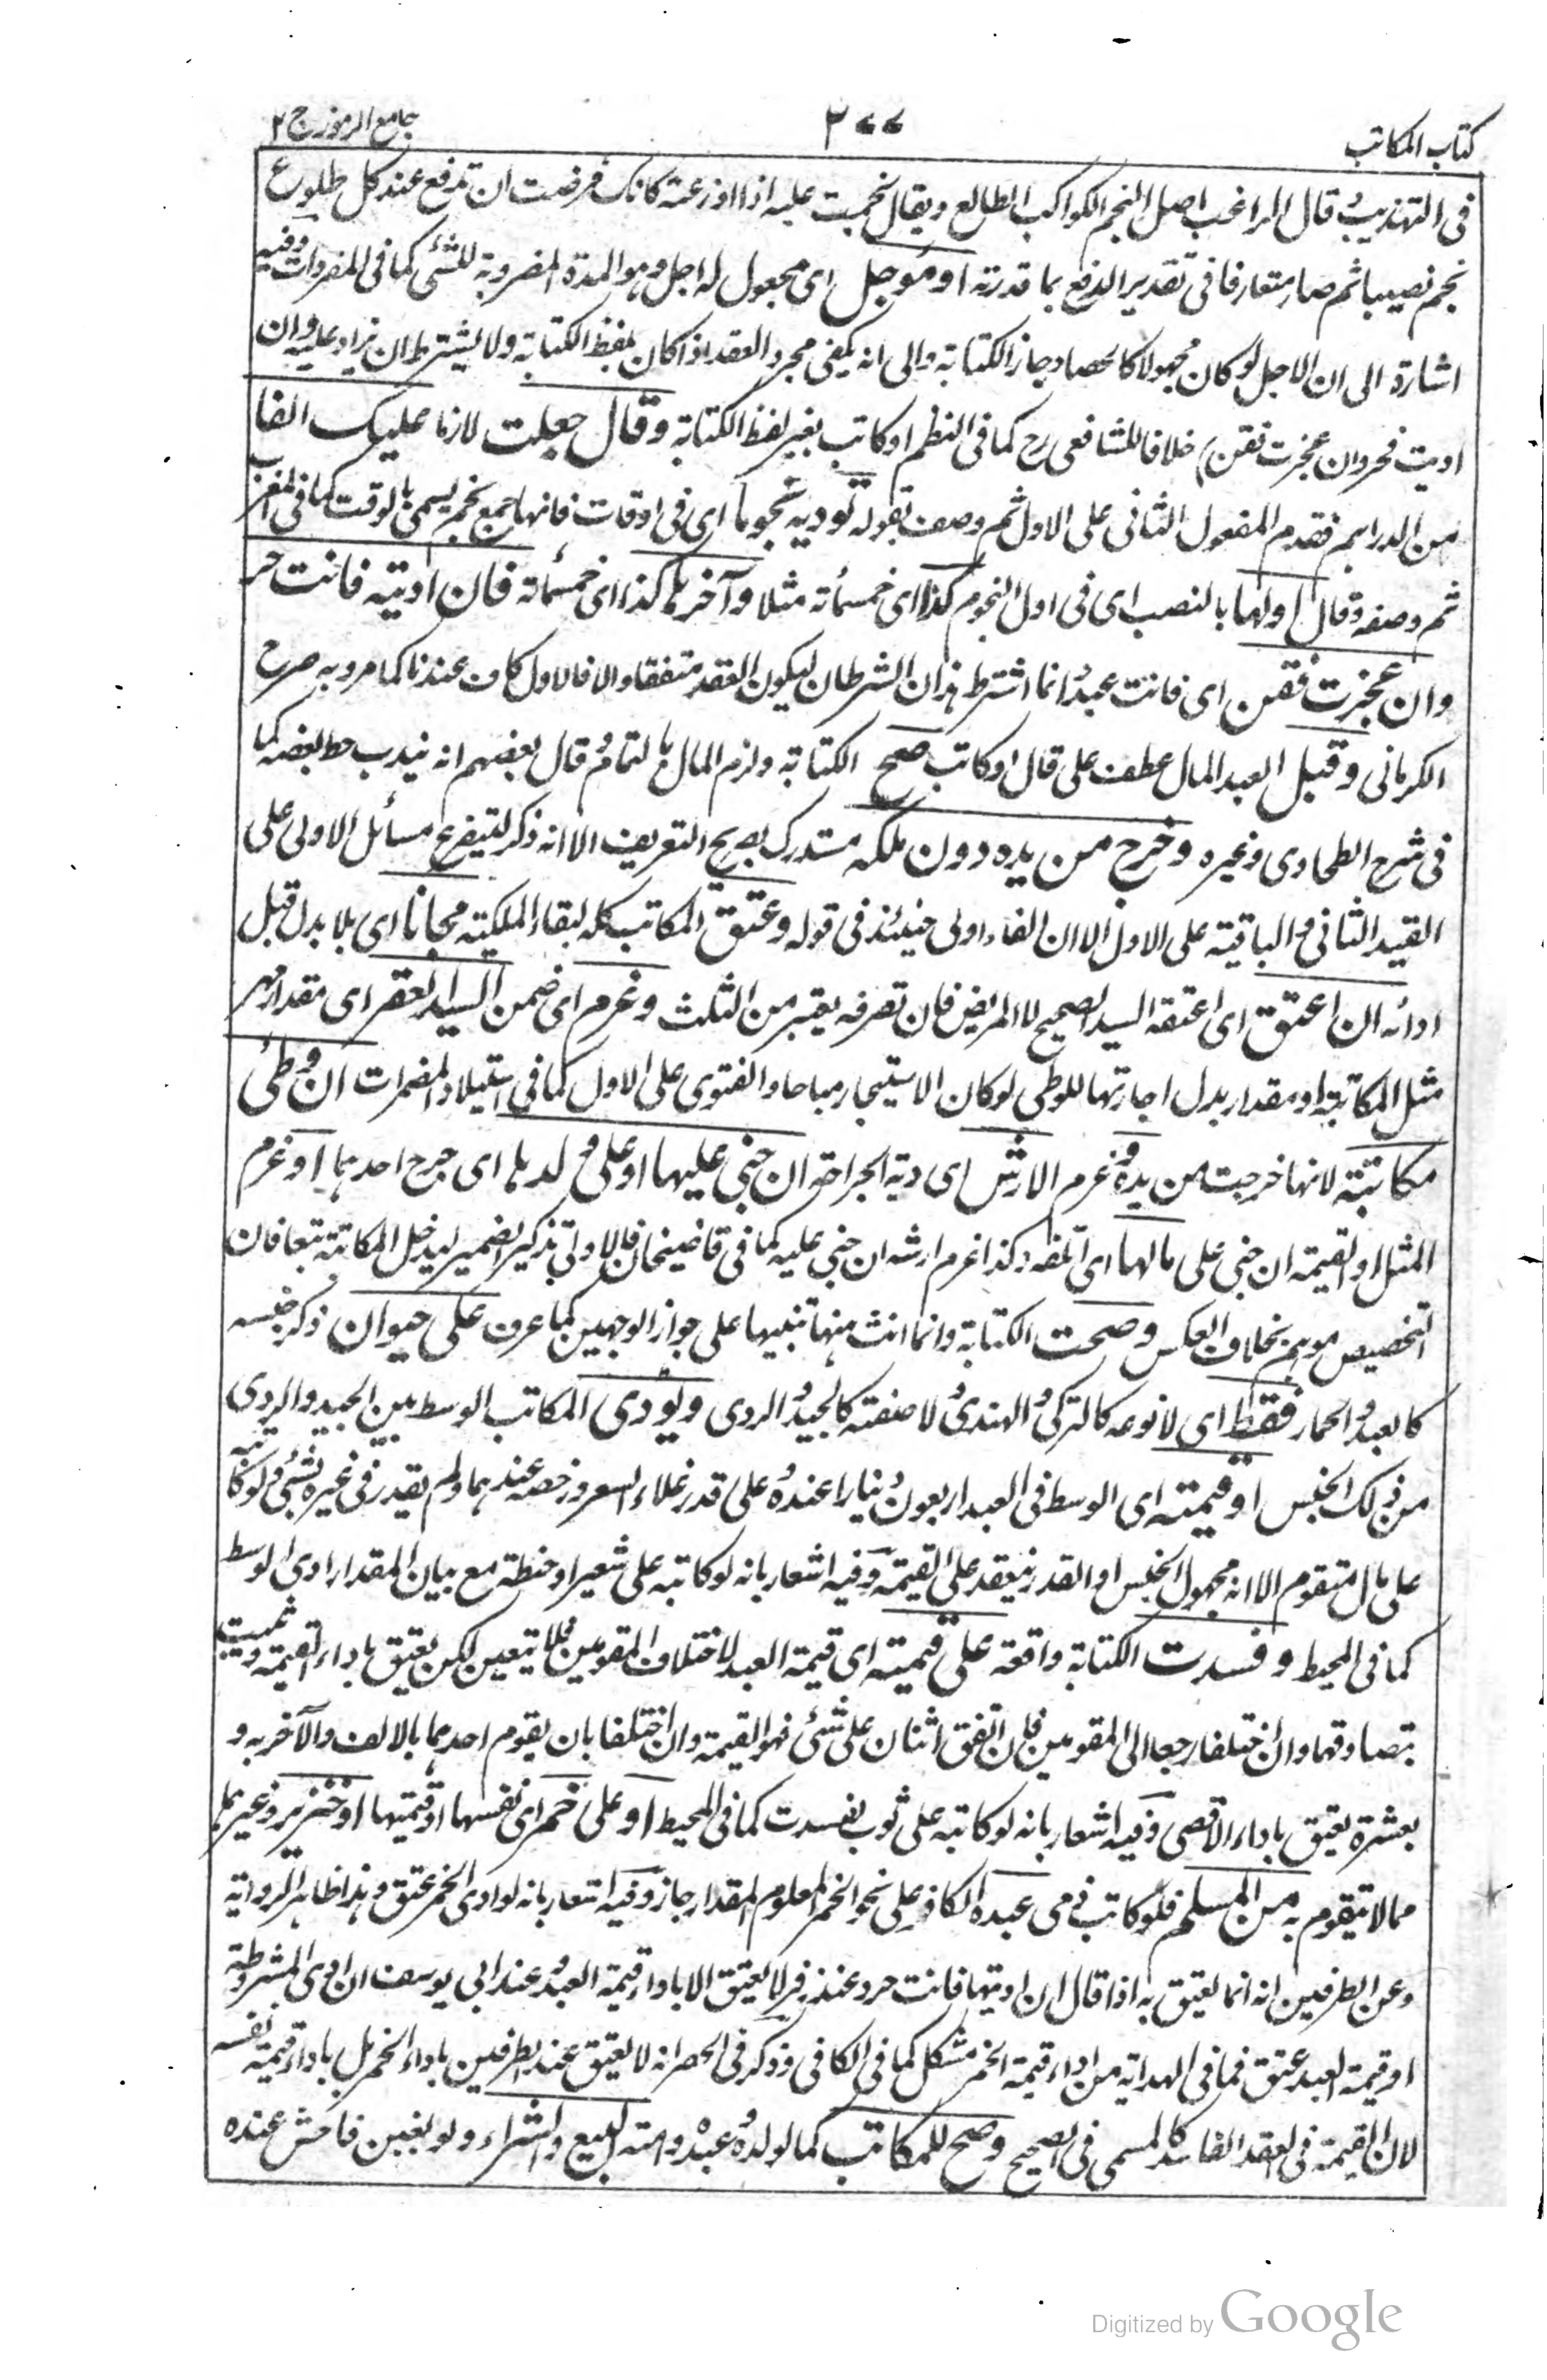 كتاب المكاتب
٣٧٧
جامع الرموز ج ٢
فى التهذيب و قال الراغب اصل النجم الكواكب الطالع ويقال نجمت عليه اذا وزعته كانك فرضت ان تدفع عند كل طلوع
نجم نصيبا ثم صار متعارفا فى تقدير الدفع بما قدرته او مؤجل اى مجعول له اجل وهو المدة المضروبة للشئ كما فى المفردات وفيه
اشارة الى ان الاجل لو كان مجهولا كالحصاد جاز الكتابة والى انه يكفى مجرد العقد اذا كان بلفظ الكتابة ولا يشترط ان يزاد عليه وان
اديت فحر وان عجزت فقن خلافا للشافعى رح كما فى النظم او كاتب بغير لفظ الكتابة وقال جعلت لازما عليك الفا
من الدراهم فقدم المفعول الثانى على الاول ثم وصف بقوله تؤديه نجوما اى فى اوقات فانها جمع نجم يسمى بالوقت كما فى المغرب
ثم وصفه وقال اولها بالنصب اى فى اول النجوم كذا اى خمسمأئة مثلا وآخرها كذا اى خمسمائة فان اديته فانت حر
وان عجزت فقن اى فانت عبد وانما اشترط هذان الشرطان ليكون العقد متفقا والا فالاول كاف عندنا كما مر وبه صرح
الكرمانى وقبل العبد المال عطف على قال او كاتب صح الكتابة ولزم المال بالتمام و قال بعضهم انه يندب حط بعضه كما
فى شرح الطحاوى وغيره وخرج من يده دون ملكه مستدرك بصريح التعريف الا انه ذكر لتيفرع مسائل الاولى على
القيد الثانى والباقية على الاول الا ان الفاء اولى حينئذ فى قوله وعتق المكاتب كله لبقاء الملكية مجانا اى بلا بدل قبل
ادائه ان اعتق اى اعتقه السيد الصحيح لا المريض فان تصرفه يعتبر من الثلث وغرم اى ضمن السيد العقر اى مقدار مهر
مثل المكاتبة او مقدار بدل اجارتها للوطى لو كان الاستيجار مباحا والفتوى على الاول كما فى استيلاد المضمرات ان وطئ
مكاتبته لانها خرجت من يده و غرم الارش اى دية الجراحة ان جنى عليها او على ولدها اى جرح احدهما او غرم
المثل او القيمة ان جنى على مالها اى اتلفه وكذا غرم ارشه ان جنى عليه كما فى قاضيخان فالاولى تذكير الضمير ليدخل المكاتبة تبعا فان
التخصيص موهم بخلاف العكس وصحت الكتابة وانما انث منها تنبيها على جواز الوجهين كما عرف على حيوان ذكر جنسه
كالعبد و الحمار فقط اى لا نوعه كالتركى و الهندى و لا صفته كالجيد و الردى ويؤدى المكاتب الوسط بين الجيد والردى
من ذلك الجنس او قيمته اى الوسط فى العبد اربعون دينارا عنده و على قدر غلاء السعر ورخصه عندهما ولم يقدر فى غيره بشئ ولو كاتبه
على مال متقوم الا انه مجهول الجنس او القدر ينعقد على القيمة وفيه اشعار بانه لو كاتبه على شعير او حنطة مع بيان المقدار ادى الوسط
كما فى المحيط وفسدت الكتابة واقعة على قيمته اى قيمة العبد لاختلاف المقومين فلا تتعين لكن يعتق باداء القيمة و تثبت
بتصادقهما وان اختلفا رجعا الى المقومين فان اتفق اثنان على شئ فهو القيمة وان اختلفا بان يقوم احدهما بالالف والآخر به و
بعشرة يعتق باداء الاقصى وفيه اشعار بانه لو كاتبه على ثوب يفسدت كما فى المحيط او على خمر اى نفسها او قيمتها او خنزير وغيرها
مما لا يتقوم به من المسلم فلو كاتب ذمى عبده الكافر على نحو الخمر المعلوم المقدار جاز وفيه اشعار بانه لو ادى الخمر عتق وهذا ظاهر الرواية
وعن الطرفين انه انما يعتق به اذا قال ان اديتها فانت حر وعند زفر لا يعتق الا باداء قيمة العبد و عند ابى يوسف ان ادى المشروطة
او قيمة العبد عتق فما فى الهداية من اداء قيمة الخمر مشكل كما فى الكافى وذكر فى الحصر انه لا يعتق عند الطرفين باداء الخمر بل باداء قيمة نفسه
لان القيمة فى العقد الفاسد كالمسمى فى الصحيح وصح للمكاتب كما لولده و عبده وامته البيع والشراء ولو بغبن فاحش عنده
Digitized by Google